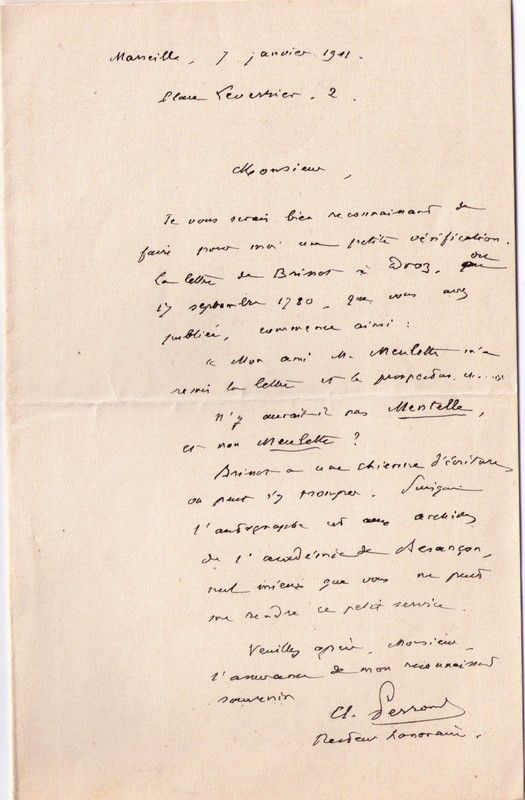 Marseille, 7 janvier 1911.
Place Leverrier. 2.
Monsieur,
Je vous serais bien reconnaissant de
faire pour moi une petite vérification.
La lettre de Brissot à Droz, du
17 septembre 1780, que vous avez
publiée, commence ainsi :
« Mon ami M. Meulette m'a
remis la lettre et le prospectus, etc....
N'y aurait-il pas Mentelle,
et non Meulette ?
Brissot a une chienne d'écriture,
on peut s'y tromper. Puisque
l'autographe est aux archives
de l'académie de Besançon,
nul mieux que vous ne peut
me rendre ce petit service.
Veuillez agréer, Monsieur,
l'assurance de mon reconnaissant
souvenir
Cl. Perroud
Recteur honoraire.